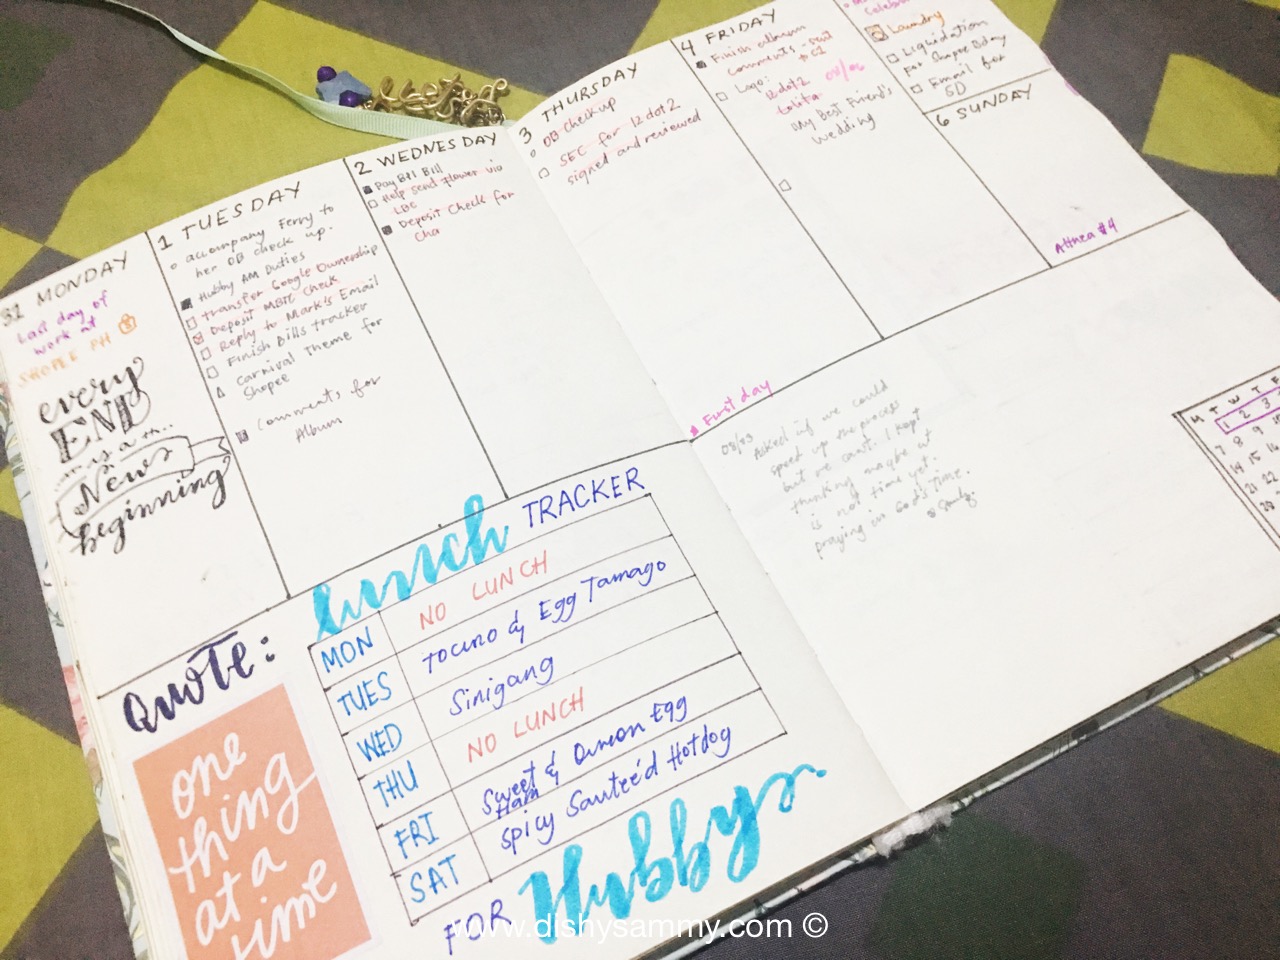 31 MONDAY
Last day of
work at
SHOPEE PH
every
END
is a
New
beginning
1 TUESDAY
accompany Ferry to
her OB check up.
Hubby AM Duties
Transfer Google Ownership
Deposit MBTC Check
Reply to Mark's Email
Finish Bills Tracker
Carnival Theme for
Shopee
Comments for
Album
2 WEDNESDAY
Pay Bill
Help send flower via
LBC
Deposit Check for
Cha
3 THURSDAY
OB Checkup
SEC for 12dot2
signed and reviewed
4 FRIDAY
Finish album
comments - sent
Logo:
12dot2
Lolita
My Best Friend's
Wedding
Laundry
Liquidation
For Shopee Bday
Email for
SD
6 SUNDAY
Althea #4
First day
Asked if we could
speed up the process
but we can't. I kept
thinking maybe it
is not time yet.
praying in God's Time.
M T W T F
1 2 3
7 8 9
14 15
21 22
28
QUOTE:
one
thing
at a
time
lunch TRACKER
MON NO LUNCH
TUES Tocino & Egg Tamago
WED Sinigang
THU NO LUNCH
FRI Sweet Ham & Onion Egg
SAT Spicy Sauteé'd Hotdog
FOR Hubby.
www.dishysammy.com ©